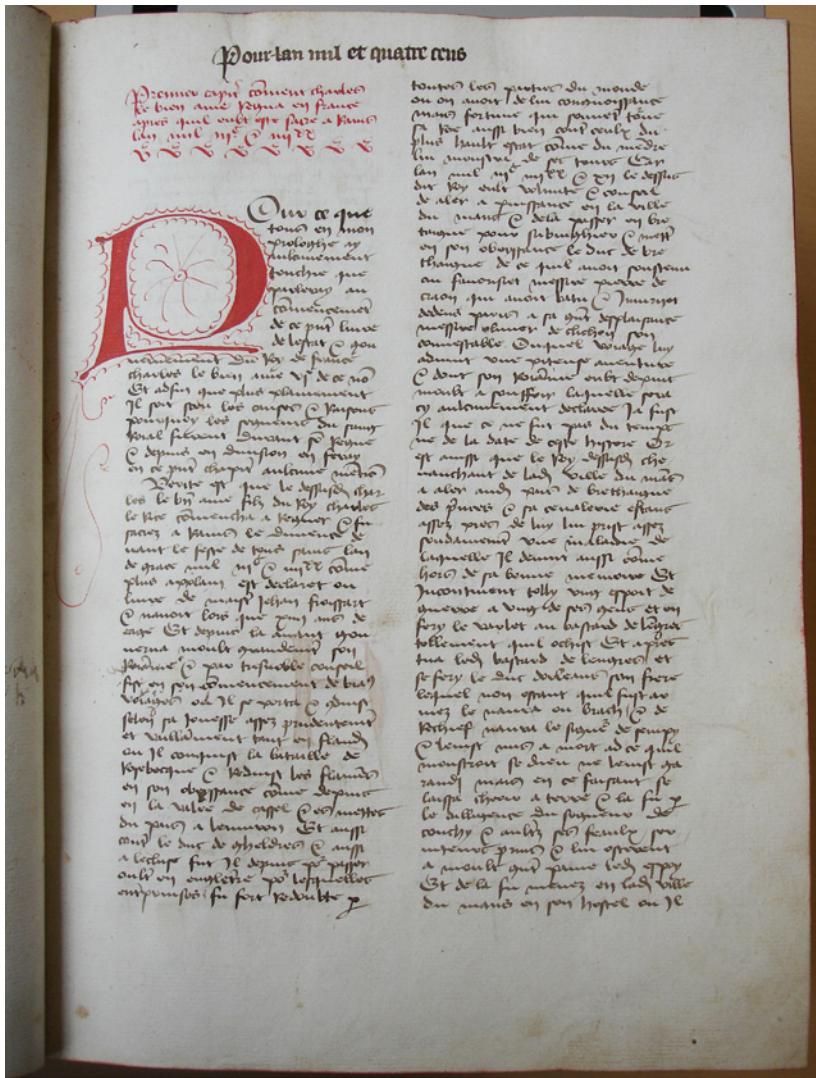 Pour lan mil et quatre cens
Premier capit͞ co͞ment charles
le bien ame regna en france
apres quil eubt este sacre a Rains
lan mil iijᶜ & iiijˣˣ
Pour ce que
tous en mon
prologhe ay
aulcunement
touchie que
parleray au
co͞mencemet͞
de ce pn͞t livre
de lestat & gou
vernement du Roy de france
charles le bien ame vjᵉ de ce no͞
Et adfin que plus plainement
Il soit sceu les causes & Raisons
pourquoy les seigneurs du sang
Roial furent durant so͞ Regne
& depuis en division en feray
en ce pn͞t chapit͞ aulcune menc͞io͞
Verite est que le dessusd͞ char
les le bn͞ ame filz du Roy charles
le Rice co͞mencha a Regner & fu
sacrez a Rains le dimence de
vant le feste de tous sains lan
de grace mil iijᶜ & iiijˣˣ co͞me
plus applain est declaret ou
livre de maist͞ Jehan froissart
& navoit lors que xiiij ans de
eage Et depuis la avant gou
verna moult grandeme͞t son
Roia͞me & par tresnoble conseil
fist en son co͞mencement de biau͞
voiages ou Il se porta & co͞duist
selon sa Jonesse assez prudentem͞t
et vailla͞ment tant en fland͞
ou Il conquist la bataille de
Rosebecque & Reduist les flame͞s
en son obeyssance co͞me depuis
en la valee de cassel & es mettes
du pais a lenviron Et aussi
cont͞ le duc de gheldres & aussi
a lescluse fut Il depuis po͞ passer
oult͞ en engleterre po͞ lesquelles
entreprinses fu fort redoubte p͞
toutes les parties du monde
ou on avoit de lui congnoissance
mais fortune qui souvet͞ torne
sa Roe aussi bien cont͞ ceulx du
plus hault estat co͞me du me͞dre
lui monstra de ses tours Car
lan mil iijᶜ iiijˣˣ & xij le dessus
dit Roy eubt volunte & conseil
de aler a puissance en la ville
du mans & dela passer en bre
taigne pour subiughier & mett͞
en son obeyssance le duc de bre
thaigne de ce quil avoit soustenu
ou favorisiet messire pierre de
craon qui avoit batu & Inivriet
dedens paris a sa gn͞t desplaisance
messire olivier de clichon son
connestable Ouquel voiage luy
advint une piteuse aventure
& dont son Roia͞me eubt depuis
moult a souffrir laquelle sera
cy aulcunement declaree Ja fust
Il que ce ne fut pas du temps
ne de la date de ceste histore Or
est ainssi que le Roy dessusd͞ che
vauchant de lad͞ ville du ma͞s
a aler aud͞ pais de brethaigne
des p͞nces & sa cevalerie estans
assez pres de luy lui prist assez
soudainem͞t une maladie de
laquelle Il devint aussi co͞me
hors de sa bonne memore Et
Incontinent tolly ung espoit de
guerre a ung de ses gens et en
fery le varlet au bastard de le͞gres
tellement quil ochist Et apres
tua led͞ bastard de lengres et
se fery le duc dorleans son frere
lequel non estant quil fust ar
mez le navra ou brach & de
Rechief navra le signᵉ de sempy
& leuist mis a mort ad ce quil
monstroit se dieu ne leuist ga
randi mais en ce faisant se
laissa cheoir a terre & la fu p͞
le dilligence du seigneur de
couchy & aultr͞ ses feaulx ser
viteurs prins & lui osterent
a moult gn͞t paine led͞ espoy
Et de la fu menez en lad͞ ville
du mans en son hostel ou Il